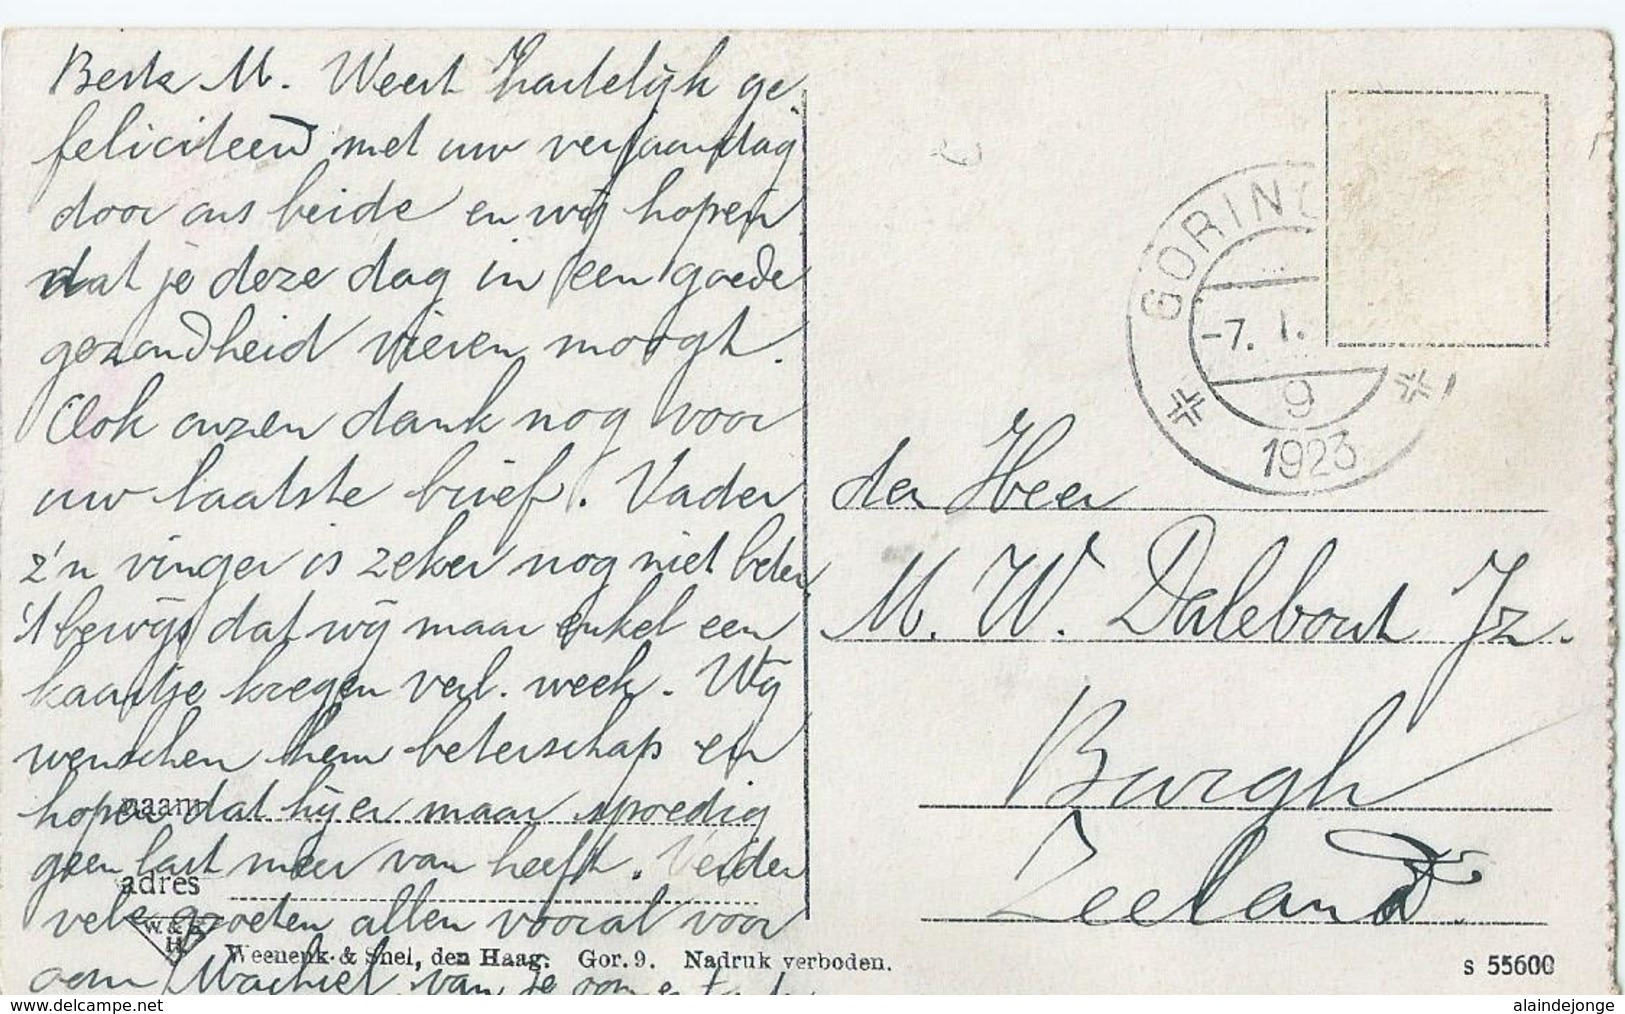 Beste M. Weest hartelijk ge-
feliciteerd met uw verjaardag
door ons beide en wij hopen
dat je deze dag in een goede
gezondheid vieren moogt.
Ook onzen dank nog voor
uw laatste brief. Vader
z'n vinger is zeker nog niet beter
't bewijs dat wij maar enkel een
kaartje kregen verl. week. Wij
wenschen hem beterschap en
hopen dat hij er maar spoedig
geen last meer van heeft. Verder
vele groeten allen vooral voor
oom Machiel van je oom en tante
naam
adres
W. & S.
H
Weenenk & Snel, den Haag. Gor. 9. Nadruk verboden.
s 55600
GORINC
-7. 1.
9
1923
den Heer
M. W. Dalebout Jz.
Burgh
Zeeland.
www.delcampe.net
alaindejonge